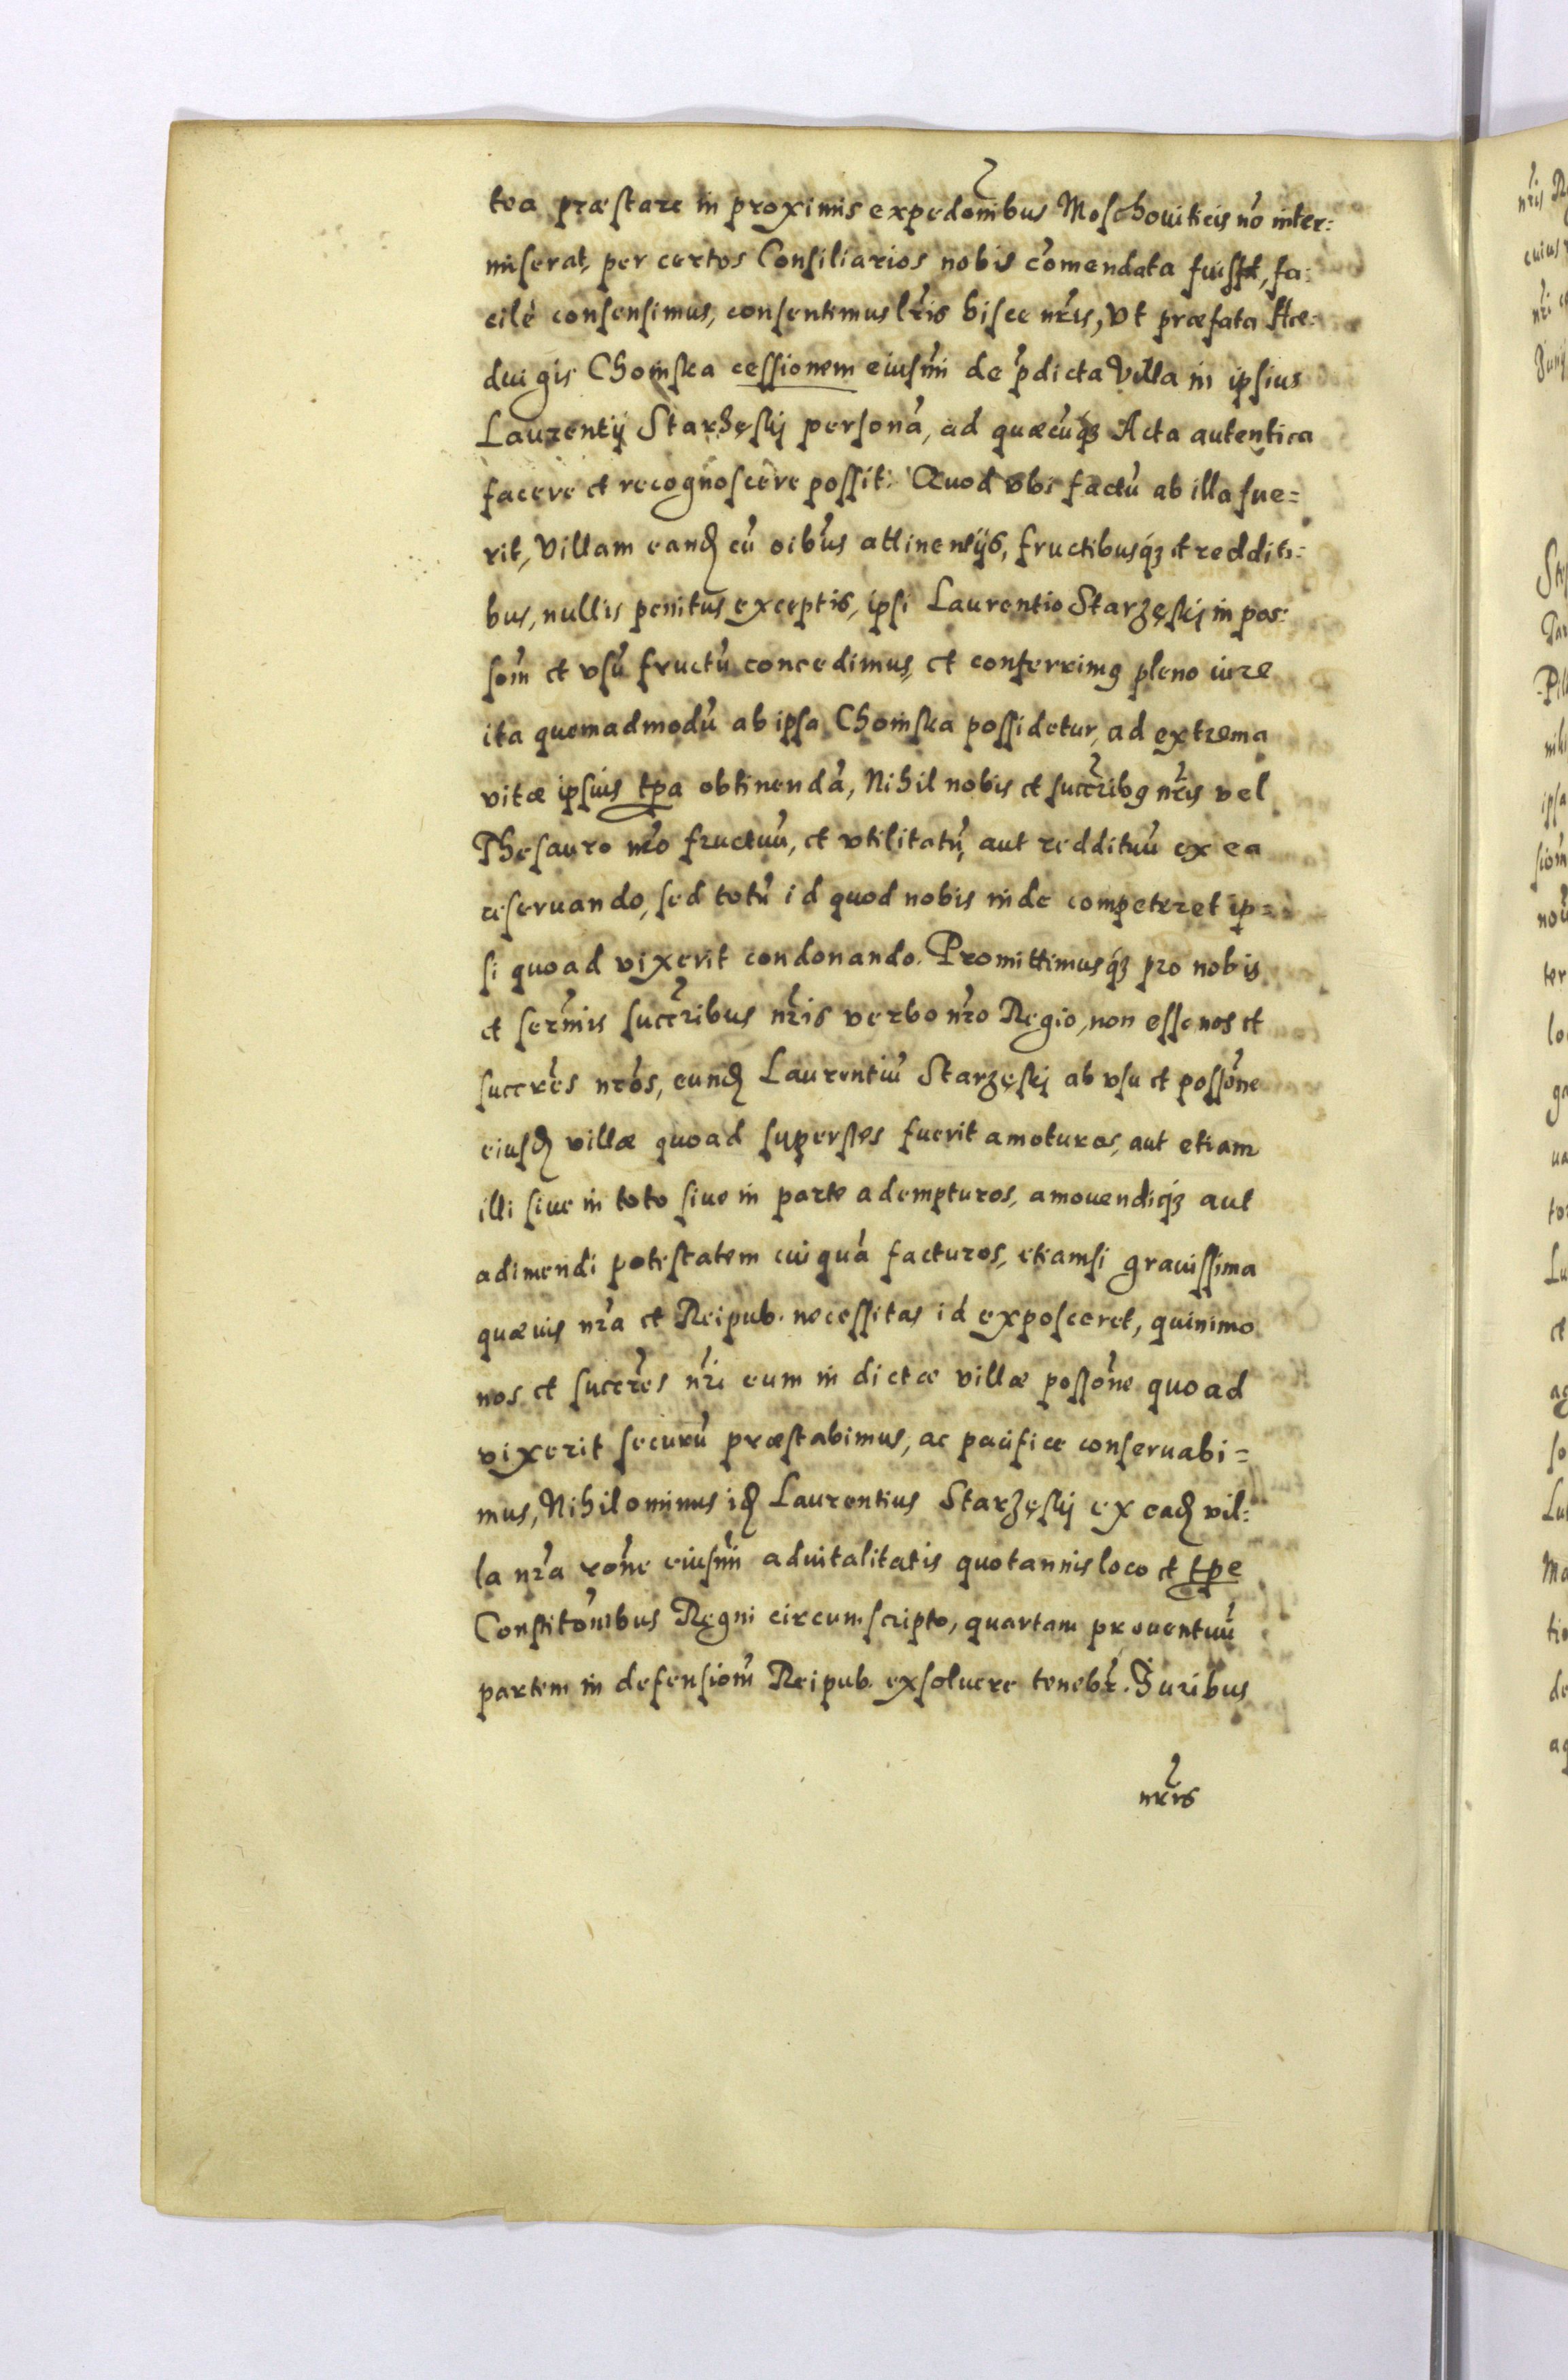 tea præstare in proximis expedōnibus Moschouiticis nō inter:
miserat, per certos Consiliarios nobis cōmendata fuisset, fa:
cilè consensimus, consentimus lr̄is hisce nr̄is, Vt præfata Hæ:
duigis Choinska cessionem eiusm̄i de p̄dicta Villa in ipsius
Laurentÿ Starzęskj personā, ad quæcūqꝫ Acta autentica
facere et recognoscere possit. Quod vbi factū ab illa fue=
rit, Villam eandꝫ cū oībus attinensÿs, fructibusqꝫ et redditi:
bus, nullis penitus exceptis, ipsi Laurentio Starzęskj in pos:
som̄ et vsū fructū concedimus, et conferrimꝰ pleno iure
ita quemadmodū ab ipsa Choinska possidetur, ad extrema
vitæ ipsius tꝑa obtinendā, Nihil nobis et succr̄ibꝰ nr̄is vel
Thesauro nr̄o fructuū, et vtilitatū, aut reddituū ex ea
reseruando, sed totū id quod nobis inde competeret ip=
si quoad vixerit condonando. Promittimusqꝫ pro nobis
et serm̄is succr̄ibus nr̄is verbo nr̄o Regio, non esse nos et
succr̄es nr̄os, eundꝫ Laurentiū Starzęskj ab vsu et possōne
eiusdꝫ villæ quoad superstes fuerit amoturos, aut etiam
illi siue in toto siue in parte adempturos, amouendiqꝫ aut
adimendi potestatem cuiquā facturos, etiamsi grauissima
quæuis nr̄a et Reipub. necessitas id exposceret, quinimo
nos et succr̄es nr̄i eum in dictæ villæ possōne quoad
vixerit securū præstabimus, ac pacifice conseruabi=
mus, Nihilominus idꝫ Laurentius Starzęskj ex eadꝫ vil:
la nr̄a rōne eiusm̄i aduitalitatis quotannis loco et tꝑe
Constitōnibus Regni circumscripto, quartam prouentuū
partem in defensiom̄ Reipub. exsoluere tenebr̄. Juribus
nr̄is